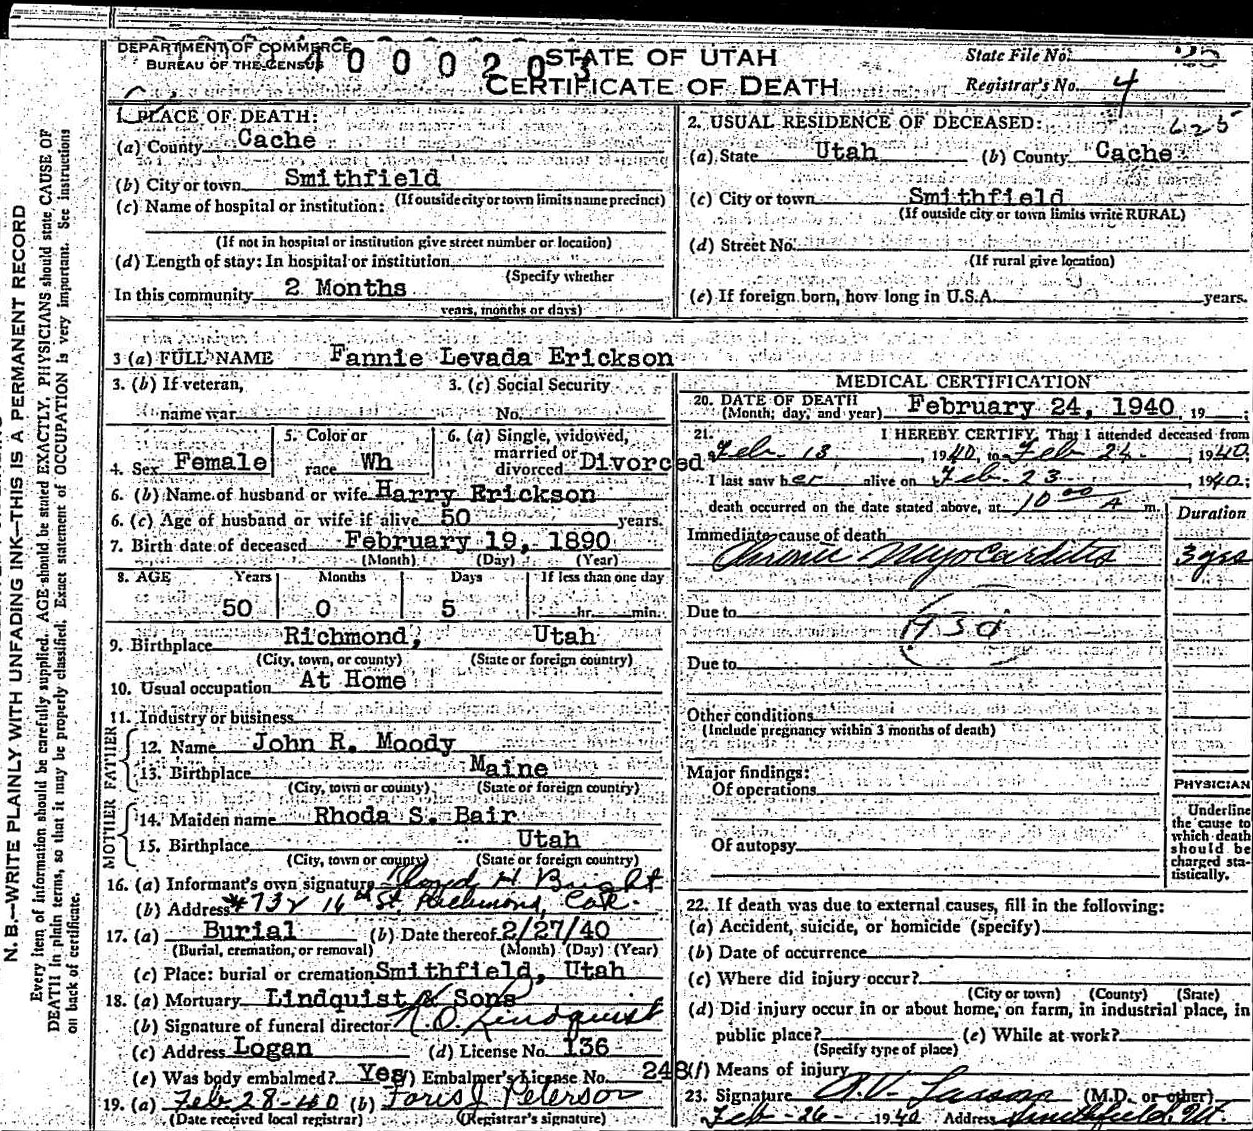 DEPARTMENT OF COMMERCE
BUREAU OF THE CENSUS
400020
STATE OF UTAH
CERTIFICATE OF DEATH
State File No. 25
Registrar's No. 4
1. PLACE OF DEATH:
(a) County Cache
(b) City or town Smithfield
(If outside city or town limits name precinct)
(c) Name of hospital or institution:
(If not in hospital or institution give street number or location)
(d) Length of stay: In hospital or institution
(Specify whether
In this community 2 Months
years, months or days)
2. USUAL RESIDENCE OF DECEASED: 625
(a) State Utah (b) County Cache
(c) City or town Smithfield
(If outside city or town limits write RURAL)
(d) Street No.
(If rural give location)
(e) If foreign born, how long in U.S.A. years.
3 (a) FULL NAME Fannie Levada Erickson
3. (b) If veteran, name war
3. (c) Social Security No.
4. Sex Female
5. Color or race Wh
6. (a) Single, widowed, married or divorced Divorced
6. (b) Name of husband or wife Harry Erickson
6. (c) Age of husband or wife if alive 50 years.
7. Birth date of deceased February 19, 1890
(Month) (Day) (Year)
8. AGE Years Months Days If less than one day
50 0 5 hr. min.
9. Birthplace Richmond, Utah
(City, town, or county) (State or foreign country)
10. Usual occupation At Home
11. Industry or business
FATHER
12. Name John R. Moody
13. Birthplace Maine
(City, town or county) (State or foreign country)
MOTHER
14. Maiden name Rhoda S. Bair
15. Birthplace Utah
(City, town or county) (State or foreign country)
16. (a) Informant's own signature H. Bright
(b) Address #732 16th St. Richmond, Cal.
17. (a) Burial (b) Date thereof 2/27/40
(Burial, cremation, or removal) (Month) (Day) (Year)
(c) Place: burial or cremation Smithfield, Utah
18. (a) Mortuary Lindquist & Sons
(b) Signature of funeral director N.O. Lindquist
(c) Address Logan (d) License No. 136
(e) Was body embalmed? Yes (f) Embalmer's License No. 248
19. (a) Feb 28-40 (b) Faris J. Peterson
(Date received local registrar) (Registrar's signature)
MEDICAL CERTIFICATION
20. DATE OF DEATH
(Month, day, and year) February 24, 1940, 19
21. I HEREBY CERTIFY, That I attended deceased from
Feb. 13, 1940, to Feb 24, 1940;
I last saw her alive on Feb. 23, 1940;
death occurred on the date stated above, at 10 00 A m.
Duration
Immediate cause of death
Chronic Myocarditis 3 yrs
Due to
Due to
Other conditions
(Include pregnancy within 3 months of death)
Major findings:
Of operations
Of autopsy
PHYSICIAN
Underline
the cause to
which death
should be
charged sta-
tistically.
22. If death was due to external causes, fill in the following:
(a) Accident, suicide, or homicide (specify)
(b) Date of occurrence
(c) Where did injury occur?
(City or town) (County) (State)
(d) Did injury occur in or about home, on farm, in industrial place, in
public place? (e) While at work?
(Specify type of place)
(f) Means of injury
23. Signature Larson (M.D. or other)
Feb-26-1940 Address Smithfield, Ut.
N. B.—WRITE PLAINLY WITH UNFADING INK—THIS IS A PERMANENT RECORD
Every item of information should be carefully supplied. AGE should be stated EXACTLY, PHYSICIANS should state CAUSE OF
DEATH in plain terms, so that it may be properly classified. Exact statement of OCCUPATION is very important. See instructions
on back of certificate.